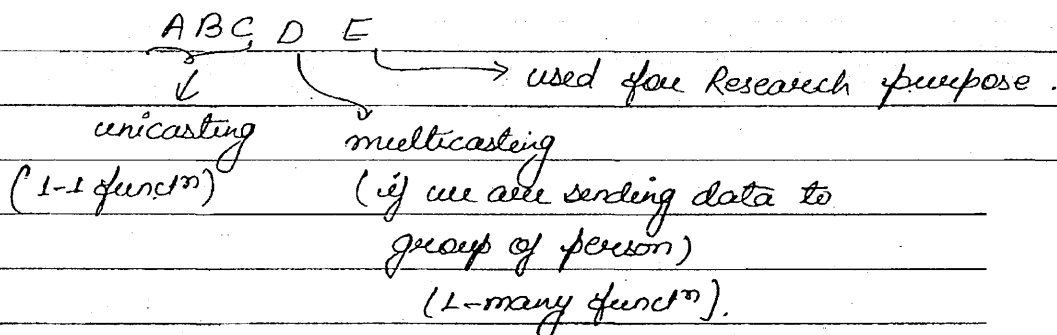 A B C D E
→ used for Research purpose.
unicasting multicasting
(1-1 functⁿ) (if we are sending data to
group of person)
(1-many functⁿ).